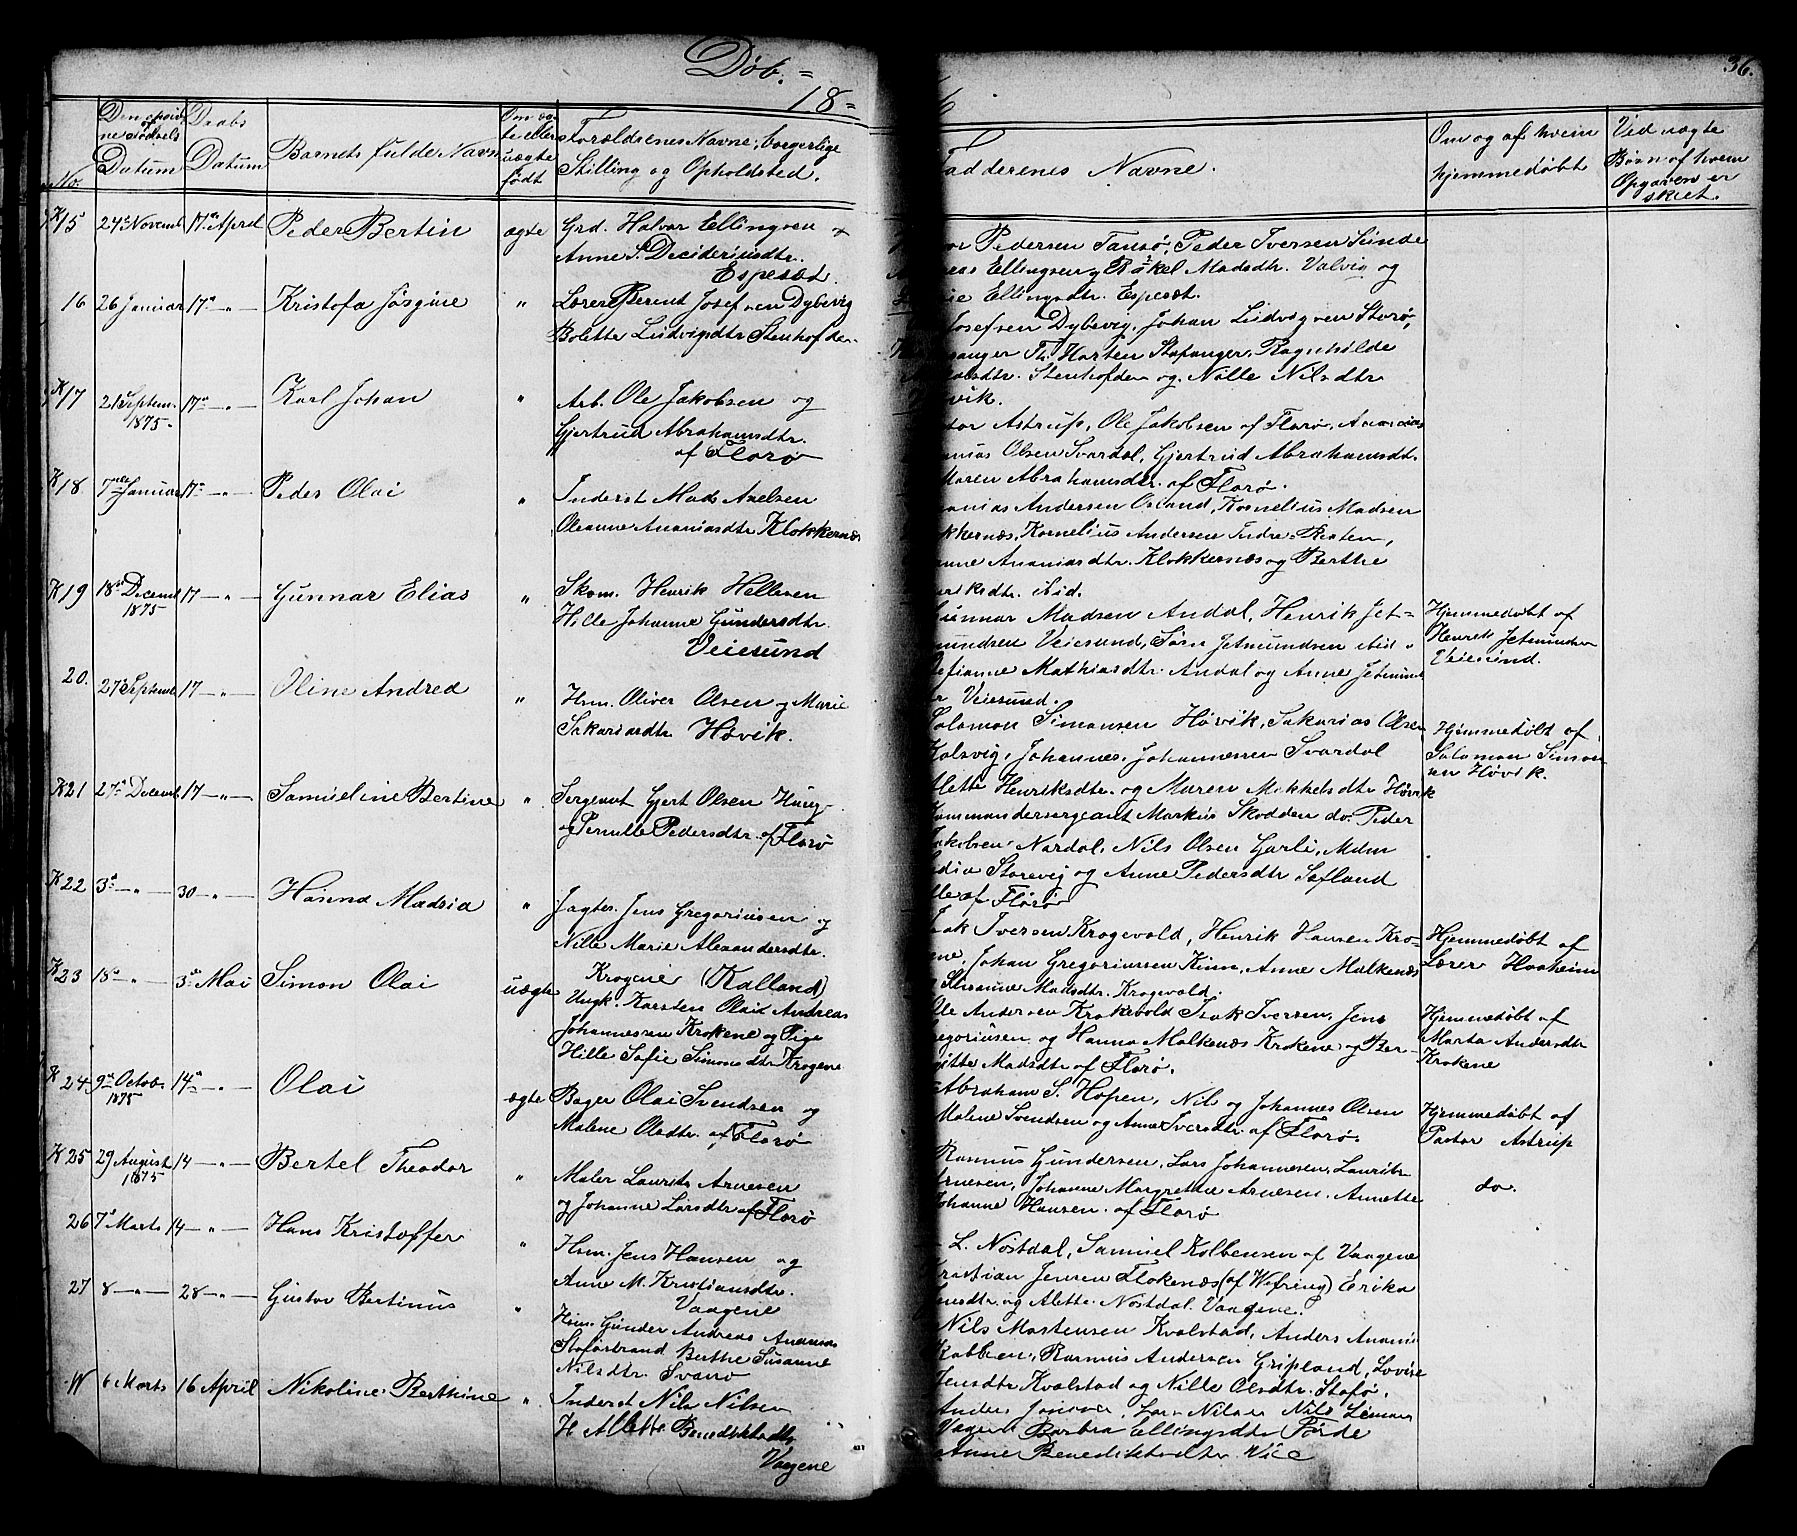 Døb.=
18=
6
36.
No.
Datum
Daabs
Datum
Barnets fulde Navn
Om æg-
te eller
uægte
født
Forældrenes Navne, borgerlige
Stilling og Opholdsted.
Fadderenes Navne.
Om og af hvem
hjemmedøbt
Ved uægte
Børn af hvem
Opgaven er
skeet.
K 15 24de Novemb 17de April Peder Bertin ægte Grd. Halvor Ellingsen
Anne S. Decideriusdtr.
Espeset
Pedersen Tansø, Peder Iversen Sunde
Ellingsen og Rakel Madsdtr. Valvig og
Ellingsdtr. Espeset.
16 26 Januar 17de — " — Kristofa Jørgine " Lærer Berent Josefsen Dybevig
Bolette Ludvigsdtr Stenhofden
Josefsen Dybevig, Johan Ludvigsen Storø,
Th. Harten Stafanger, Ragnhilde
Stenhofden og Nille Nilsdtr
vik.
K 17 21 Septem. 17de — " — Karl Johan " Arb. Ole Jakobsen og
1875
Gjertrud Abrahamsdtr.
af Florø
Astrup, Ole Jakobsen af Florø, Ananias
Olsen Svardal, Gjertrud Abrahamsdtr
Maren Abrahamsdtr. af Florø.
K 18 7de Januar 17 — " — Peder Olai " Inderst Mads Axelsen
Oleanne Ananiasdtr Klokkernæs
Andersen Osland, Kornelius Madsen
Kornelius Andersen Indre-Reksten,
Ananiasdtr. Klokkernæs og Berthe
ibid.
K 19 18de Decemb 17 — " — Gunnar Elias " Skom. Henrik Hellesen
1875
Hille Johanne Gundersdtr.
Veiesund
Gunnar Madsen Andal, Henrik Jet-
mundsen Veiesund, Søren Jetmundsen ibid
Mathiasdtr. Andal og Anne Jetmund
Veiesund.
Hjemmedøbt af
Henrik Jetmundsen
Veiesund.
20. 27de Septemb 17 — " — Oline Andrea " Hsm. Oliver Olsen og Marie
Sakariasdtr Høvik.
Salomon Simonsen Høvik, Sakarias Olsen
Kalsvig, Johannes Johannessen Svardal
Henriksdtr. og Maren Mikkelsdtr Høvik
Hjemmedøbt af
Salomon Simon
sen Høvik.
K 21 27de Decemb 17 — " — Samueline Bertine " Sergeant Gjert Olsen Haug
og Pernille Pedersdtr. af Florø
Kommandersergeant Markus Skodden do. Peder
Jakobsen Nardal, Nils Olsen Garli, Mdm
Storevig og Anne Pedersdtr Sefland
alle af Florø
K 22 3de — " — 30 — " — Hasina Madsia " Jagtes. Jens Gregoriusen og
Nille Marie Alexandersdtr.
Krogene (Kalland)
Isak Iversen Krogevold, Henrik Hansen Kro-
gene, Johan Gregoriussen Kinn, Anne Malkenæs
og Susanne Madsdtr. Krogevold.
Hjemmedøbt af
Lærer Haaheim
K 23 18de — " — 3de Mai Simon Olai uægte Ungk. Karsten Olai Andreas
Johannessen Krokene og Pige
Hille Sofie Simonsdtr Krogene
Ole Andersen Krokevold Isak Iversen, Jens
Gregoriusen og Hanna Malkenæs Krokene og Ber-
gitte Madsdtr af Florø.
Hjemmedøbt af
Marta Andersdtr
Krokene
K 24 9de Octob. 14de — " — Olai ægte Bager Olai Svendsen og
1875
Malene Olsdtr. af Florø
Abraham S. Hopen, Nils og Johannes Olsen
Malene Svendsen og Anne Iversdtr. af Florø.
Hjemmedøbt af
Pastor Astrup
K 25 29 August 14 — " — Bertel Theodor " Maler Laurits Arnesen
1875
og Johanne Larsdtr af Florø
Rasmus Gundersen, Lars Johannesen, Laurits
Arnesen, Johanne Margrethe Arnesen. Annette
Johanne Hansen. af Florø
do.
26 7de Marts 14 — " — Hans Kristoffer " Hsm. Jens Hansen og
Anne M. Kristiansdtr.
Vaagene
L. Nostdal, Samuel Kolbensen af Vaagene
Kristian Jensen Flokenæs (af Vefring) Erika
og Alette Nostdal. Vaagene.
27 8 — " — 28 — " — Gustav Bertinus " Hsm. Gunder Andreas Ananias
Stoførbrand Berthe Susanne
Nilsdtr. Svanø
Nils Mortensen Kvalstad, Anders Anani
Rasmus Andersen Gripland, Lovise
Jensdtr Kvalstad og Nille Olsdtr. Stafø.
W 6 Marts 16 April Nikoline Berthine " Inderst Nils Nilsen
H. Allette Benediktsdtr
Vaagene
Anders Lars Nilsen Nils
Barbra Ellingsdtr Førde
Anne Benediktsdtr Vie